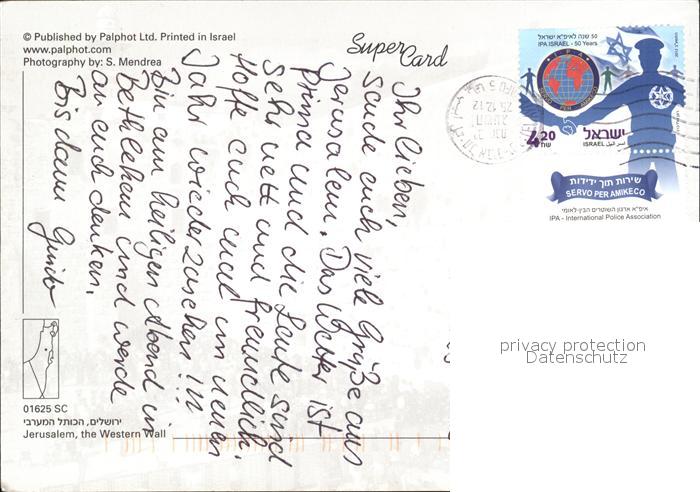 © Published by Palphot Ltd. Printed in Israel
www.palphot.com
Photography by: S. Mendrea
Super Card
Ihr lieben,
sende euch viele Grüße aus
Jerusalem. Das Wetter ist
prima und die Leute sind
sehr nett und freundlich.
Hoffe euch mal im neuen
Jahr wiederzusehen!!!
Bin am heiligen Abend in
Bethlehem und werde
an euch denken.
Bis dann Guido
01625 SC
ירושלים, הכותל המערבי
Jerusalem, the Western Wall
50 שנה לאיפ"א ישראל
IPA ISRAEL - 50 Years
IPA
SERVO PER AMIKECO
4.20
ישראל
ISRAEL اسرائيل
שירות תוך ידידות
SERVO PER AMIKECO
איפ"א ארגון השוטרים הבין-לאומי
IPA - International Police Association
25.12.12
privacy protection
Datenschutz